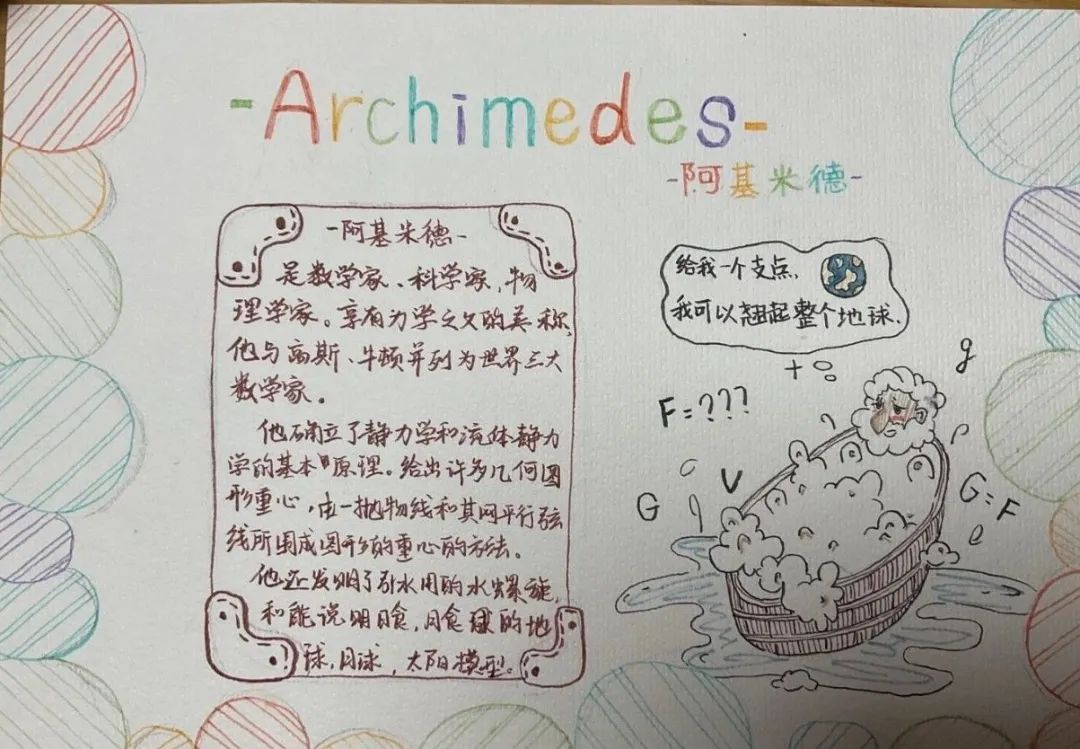 -Archimedes-
-阿基米德-
-阿基米德-
是数学家、科学家,物
理学家。享有力学之父的美称,
他与高斯、牛顿并列为世界三大
数学家。
他确立了静力学和流体静力
学的基本原理。给出许多几何图
形重心,由一抛物线和其网平行弦
线所围成图形的重心的方法。
他还发明了引水用的水螺旋,
和能说明日食,月食的地
球,月球,太阳模型。
给我一个支点,
我可以翘起整个地球.
F=???
g
G
V
G=F